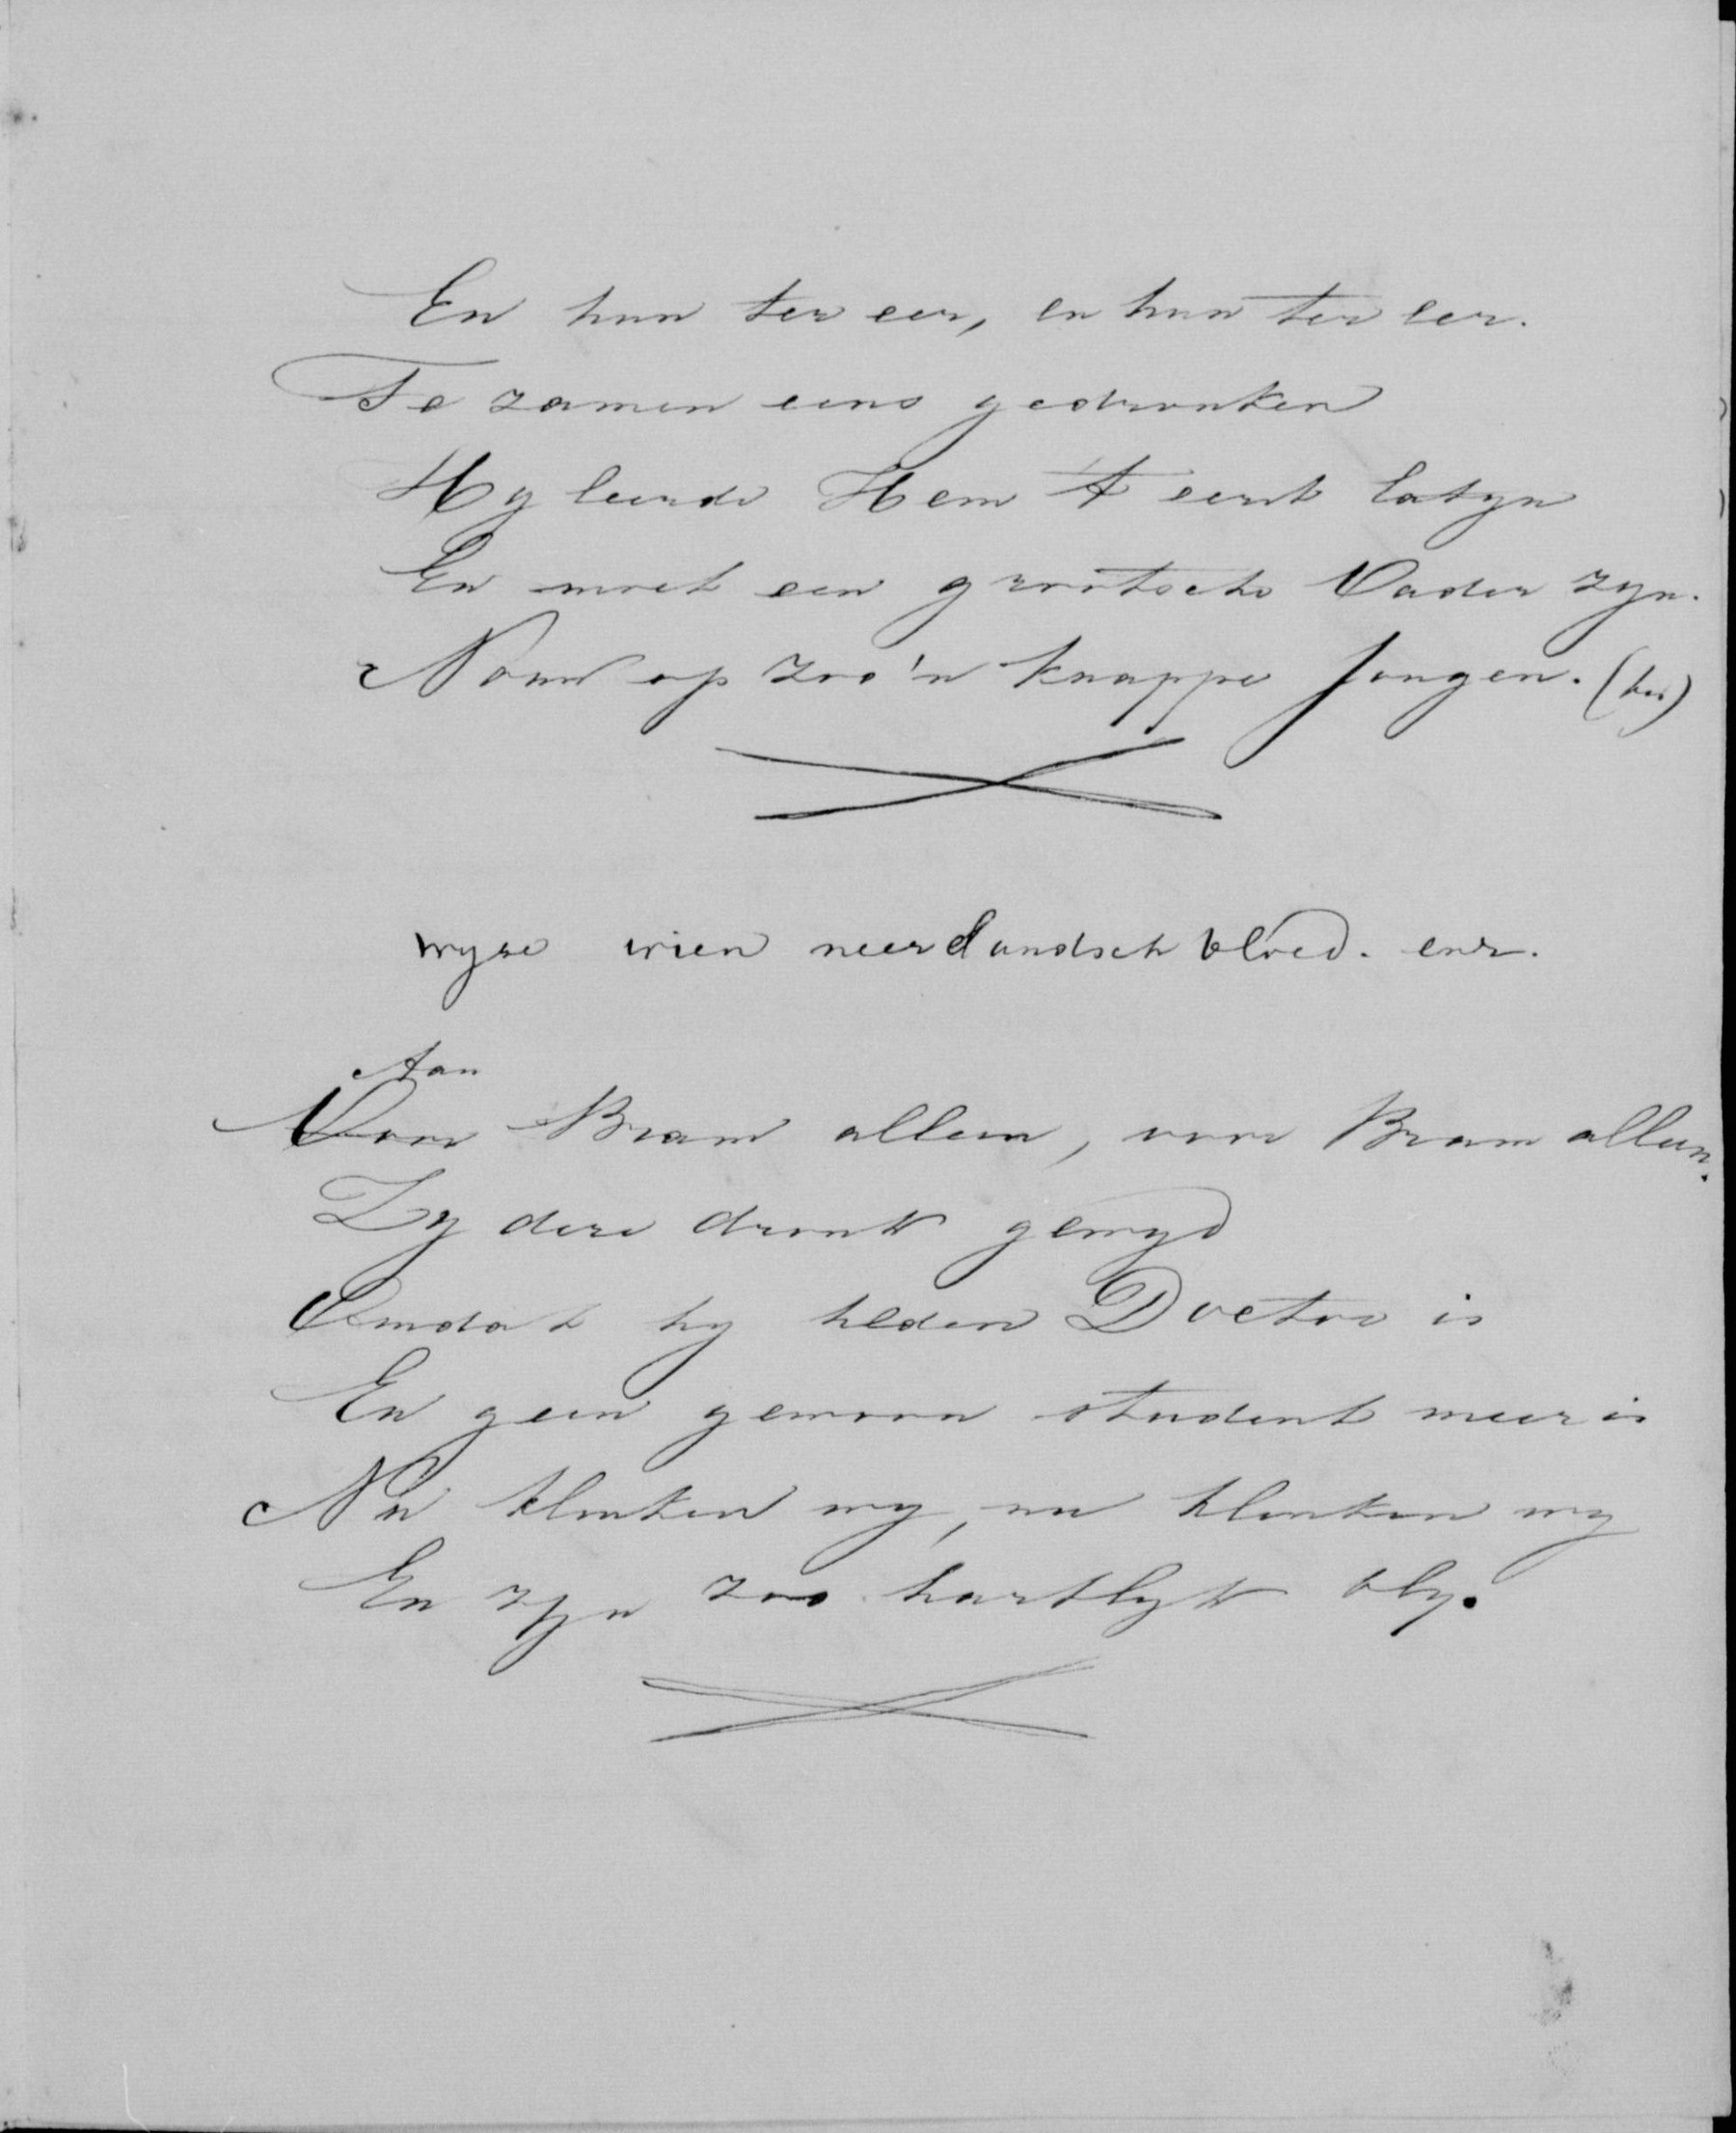 En hun ter eer, en hun ter eer.
Te zamen eens gedronken
Hy leerde Hem 't eerst latyn
En moet een grootsche Vader zyn.
Nou op zoo'n knappe jongen. (bis)
wyse wien neerlandsch bloed. enz.
Aan
Voor Bram alleen, voor Bram alleen.
Zy deze dronk gewyd
Omdat hy heden Doctor is
En geen gewoon student meer is
Nu klinken wy, nu klinken wy
En zyn zoo hartlyk bly.